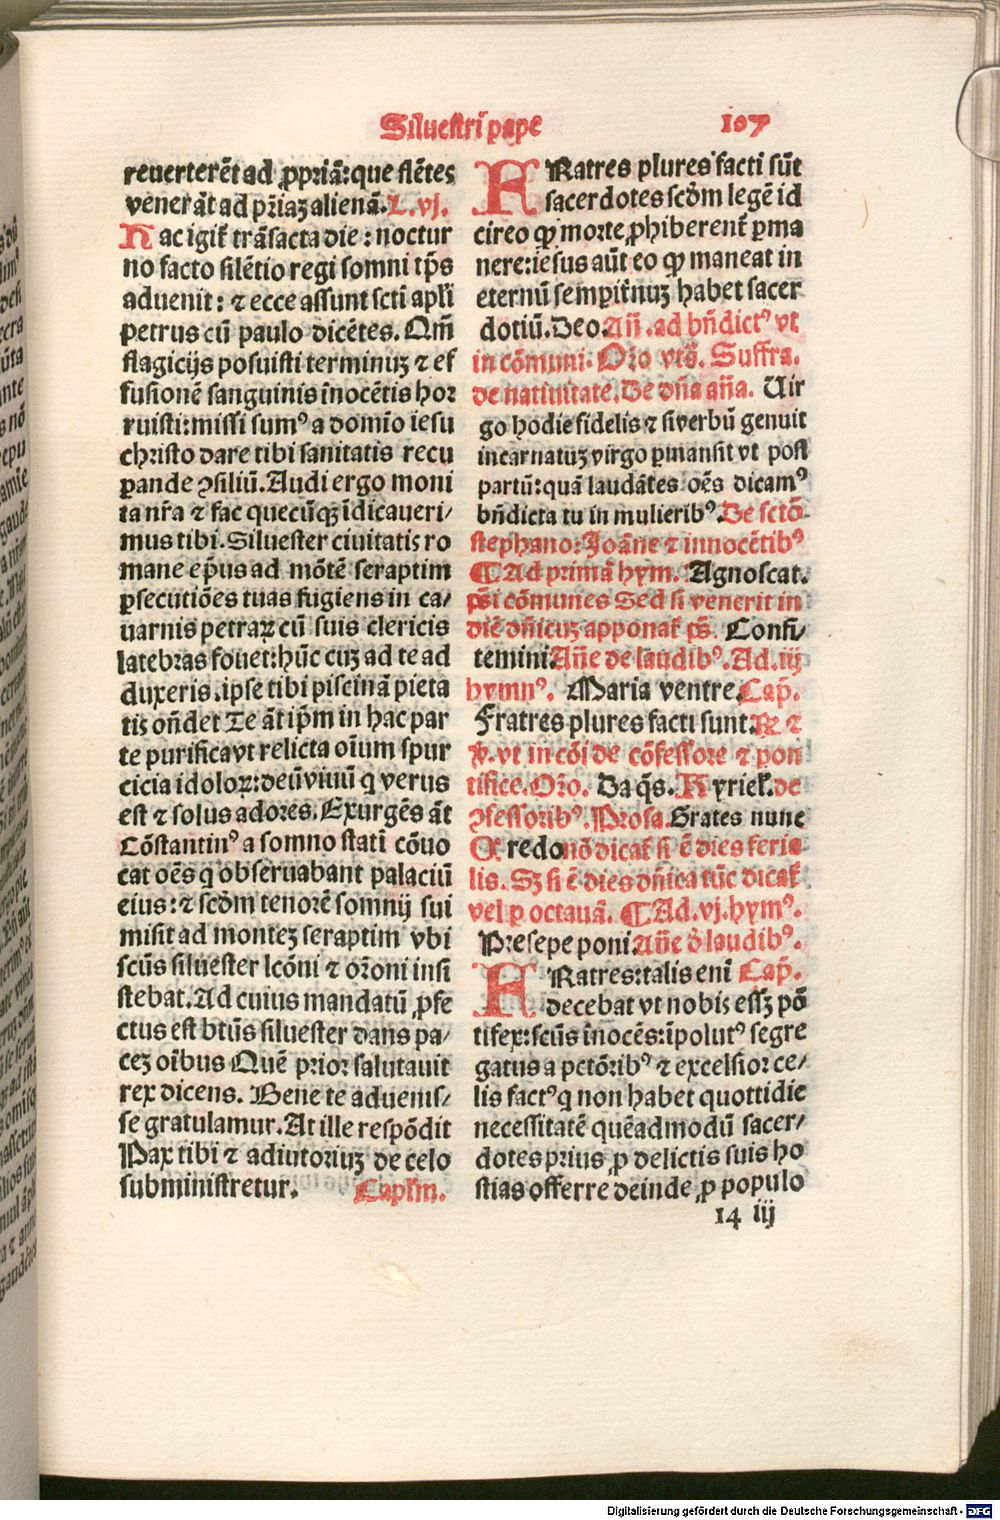 Siluestri pape 107
reuerterēt ad ꝓpriā: que flētes
venerāt ad pr̄iaꝫ alienā. L. vj.
Hac igit᷑ trāsacta die: noctur
no facto silētio regi somni tp̄s
aduenit: ⁊ ecce assunt scti apli
petrus cū paulo dicētes. Qm̄
flagicijs posuisti terminuꝫ ⁊ ef
fusionē sanguinis inocētis hor
ruisti: missi sumꝰ a domīo iesu
christo dare tibi sanitatis recu
ꝑande ꝯsiliū. Audi ergo moni
ta nr̄a ⁊ fac quecūqꝫ īdicaueri/
mus tibi. Siluester ciuitatis ro
mane ep̄us ad mōtē seraptim
ꝑsecutiōes tuas fugiens in ca/
uarnis petraꝝ cū suis clericis
latebras fouet: hūc cuꝫ ad te ad
duxeris. ipse tibi piscinā pieta
tis oñdet Te āt ip̄m in hac par
te purifica vt relicta oīum spur
cicia idoloꝝ: deū viuū q verus
est ⁊ solus adores. Exurgēs āt
Cōstantinꝰ a somno statī cōuo
cat oēs q obseruabant palaciū
eius: ⁊ scdm tenorē somnij sui
misit ad monteꝫ seraptim vbi
scūs siluester lcōni ⁊ orōni insi
stebat. Ad cuius mandatū ꝓfe
ctus est btūs siluester dans pa/
ceꝫ oībus Quē prior salutauit
rex dicens. Bene te aduenis/
se gratulamur. At ille respōdit
Pax tibi ⁊ adiutoriuꝫ de celo
subministretur. Caplm.
FRatres plures facti sūt
sacerdotes scdm legē id
circo ꝙ morte ꝓhiberent᷑ ꝑma
nere: iesus aūt eo ꝙ maneat in
eternū sempit᷑nuꝫ habet sacer
dotiū. Deo. Añ. ad bñdictꝰ vt
in cōmuni. Oro vt s̄. Suffra.
de natiuitate. De dn̄a añā. Uir
go hodie fidelis ⁊ si verbū genuit
incarnatuꝫ virgo ꝑmansit vt post
partū: quā laudātes oēs dicamꝰ
bn̄dicta tu in mulieribꝰ. De sctō
stephano: Joāne ⁊ innocētibꝰ
¶ Ad primā hym. Agnoscat.
ps̄i cōmunes Sed si venerit in
diē dn̄icuꝫ apponat᷑ ps̄. Confi/
temini. Añe de laudibꝰ. Ad. iij
hymnꝰ. Maria ventre. Cap̄.
Fratres plures facti sunt. ℟ ⁊
℣. vt in cōi de cōfessore ⁊ pon
tifice. Oro. Da q̄s. Kyriel᷑. de
ꝯfessoribꝰ. Prosa. Grates nunc
Credo nō dicat᷑ si ē dies feria
lis. Sꝫ si ē dies dn̄ica tūc dicat᷑
vel ꝑ octauā. ¶ Ad. vj. hymꝰ.
Presepe poni. Añe d̄ laudibꝰ.
FRatres: talis enī Cap̄.
decebat vt nobis essꝫ pō
tifex: scūs īnocēs: īpolutꝰ segre
gatus a pctōribꝰ ⁊ excelsior ce/
lis factꝰ q non habet quottidie
necessitatē quēadmodū sacer/
dotes prius ꝓ delictis suis ho
stias offerre deinde ꝓ populo
14 iij
Digitalisierung gefördert durch die Deutsche Forschungsgemeinschaft - DFG